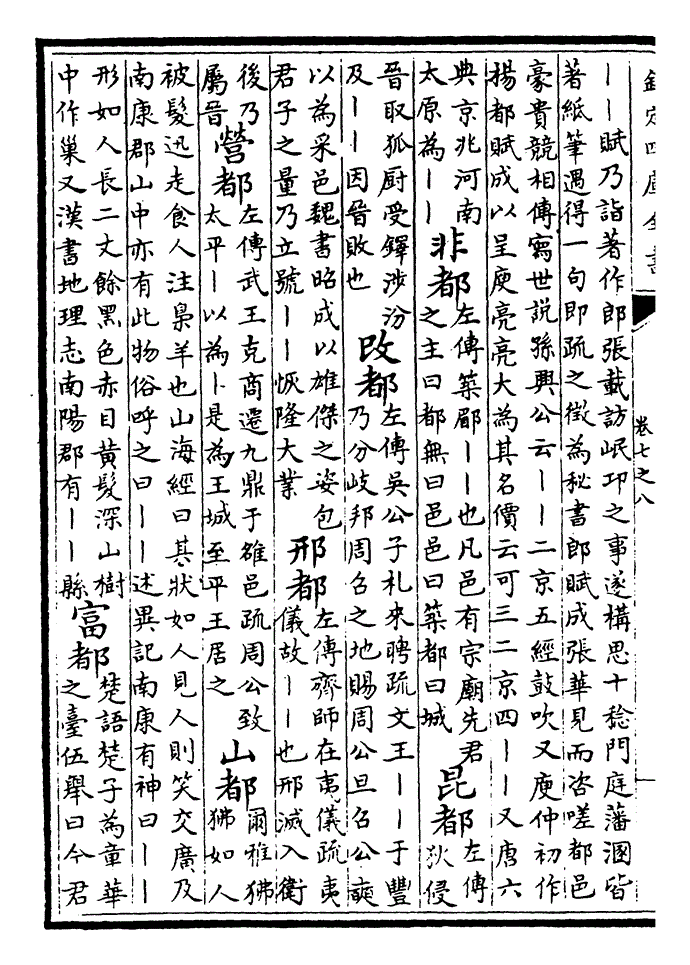 欽定四庫全書
卷七之八
丨丨賦乃詣著作郎張載訪岷邛之事遂構思十稔門庭藩溷皆
著紙筆遇得一句即疏之徵為秘書郎賦成張華見而咨嗟都邑
豪貴競相傳寫世説孫興公云丨丨二京五經鼓吹又庾仲初作
揚都賦成以呈庾亮亮大為其名價云可三二京四丨丨又唐六
典京兆河南
太原為丨丨
非都
左傳築郿丨丨也凡邑有宗廟先君
之主曰都無曰邑邑曰築都曰城
昆都
左傳
狄侵
晉取狐厨受鐸涉汾
及丨丨因晉敗也
改都
左傳吳公子札來聘疏文王丨丨于豐
乃分岐邦周召之地賜周公旦召公奭
以為采邑魏書昭成以雄傑之姿包
君子之量乃立號丨丨恢隆大業
邢都
左傳齊師在夷儀疏夷
儀故丨丨也邢滅入衛
後乃
屬晉
營都
左傳武王克商遷九鼎于雒邑疏周公致
太平丨以為卜是為王城至平王居之
山都
爾雅狒
狒如人
被髮迅走食人注梟羊也山海經曰其狀如人見人則笑交廣及
南康郡山中亦有此物俗呼之曰丨丨述異記南康有神曰丨丨
形如人長二丈餘黑色赤目黃髮深山樹
中作巢又漢書地理志南陽郡有丨丨縣
富都
楚語楚子為童華
之臺伍舉曰今君